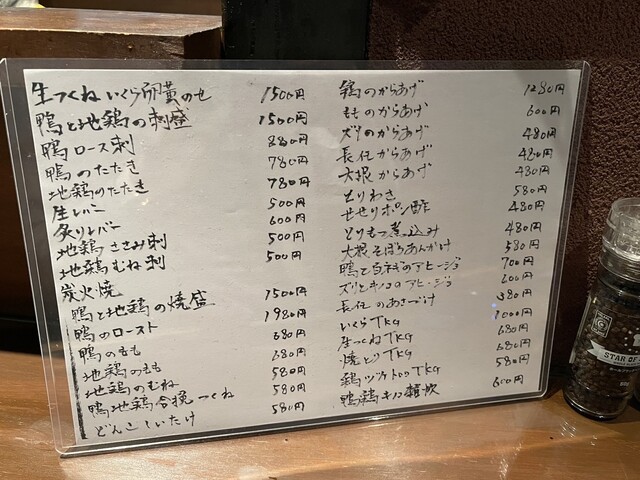 生つくね いくら卵黄のせ 1500円
鴨と地鶏の刺盛 1500円
鴨ロース刺 880円
鴨のたたき 780円
地鶏のたたき 780円
生レバー 500円
炙りレバー 600円
地鶏ささみ刺 500円
地鶏むね刺 500円
炭火焼
鴨と地鶏の焼盛 1500円
鴨のロースト 1980円
鴨のもも 680円
地鶏のもも 680円
地鶏のむね 580円
鴨地鶏合挽つくね 580円
どんこしいたけ 580円
鶏のからあげ 1280円
もものからあげ 600円
ズリのからあげ 480円
長芋からあげ 480円
大根からあげ 480円
とりわさ 580円
せせりポン酢 480円
とりもつ煮込み 480円
大根そぼろあんかけ 580円
鴨と白ねぎのアヒージョ 700円
ズリとキノコのアヒージョ 600円
長芋のあさづけ 380円
いくらTKG 1000円
生つくねTKG 680円
焼とりTKG 680円
鶏ヅケトロTKG 580円
鴨鶏キノコ雑炊 600円
STAR OF